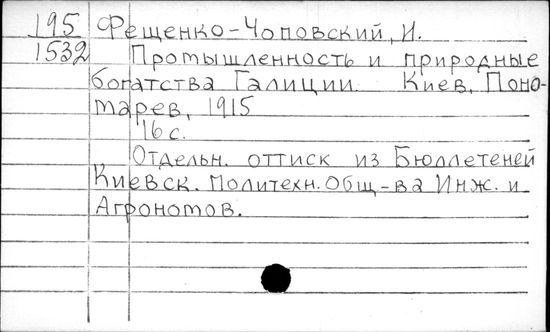 195 Фещенко-Чоповский, И.
1532 Промышленность и природные
богатства Галиции. Киев, Поно-
марев, 1915
16 с.
Отдельн. оттиск из Бюллетеней
Киевск. Политехн. Общ-ва Инж. и
Агрономов.